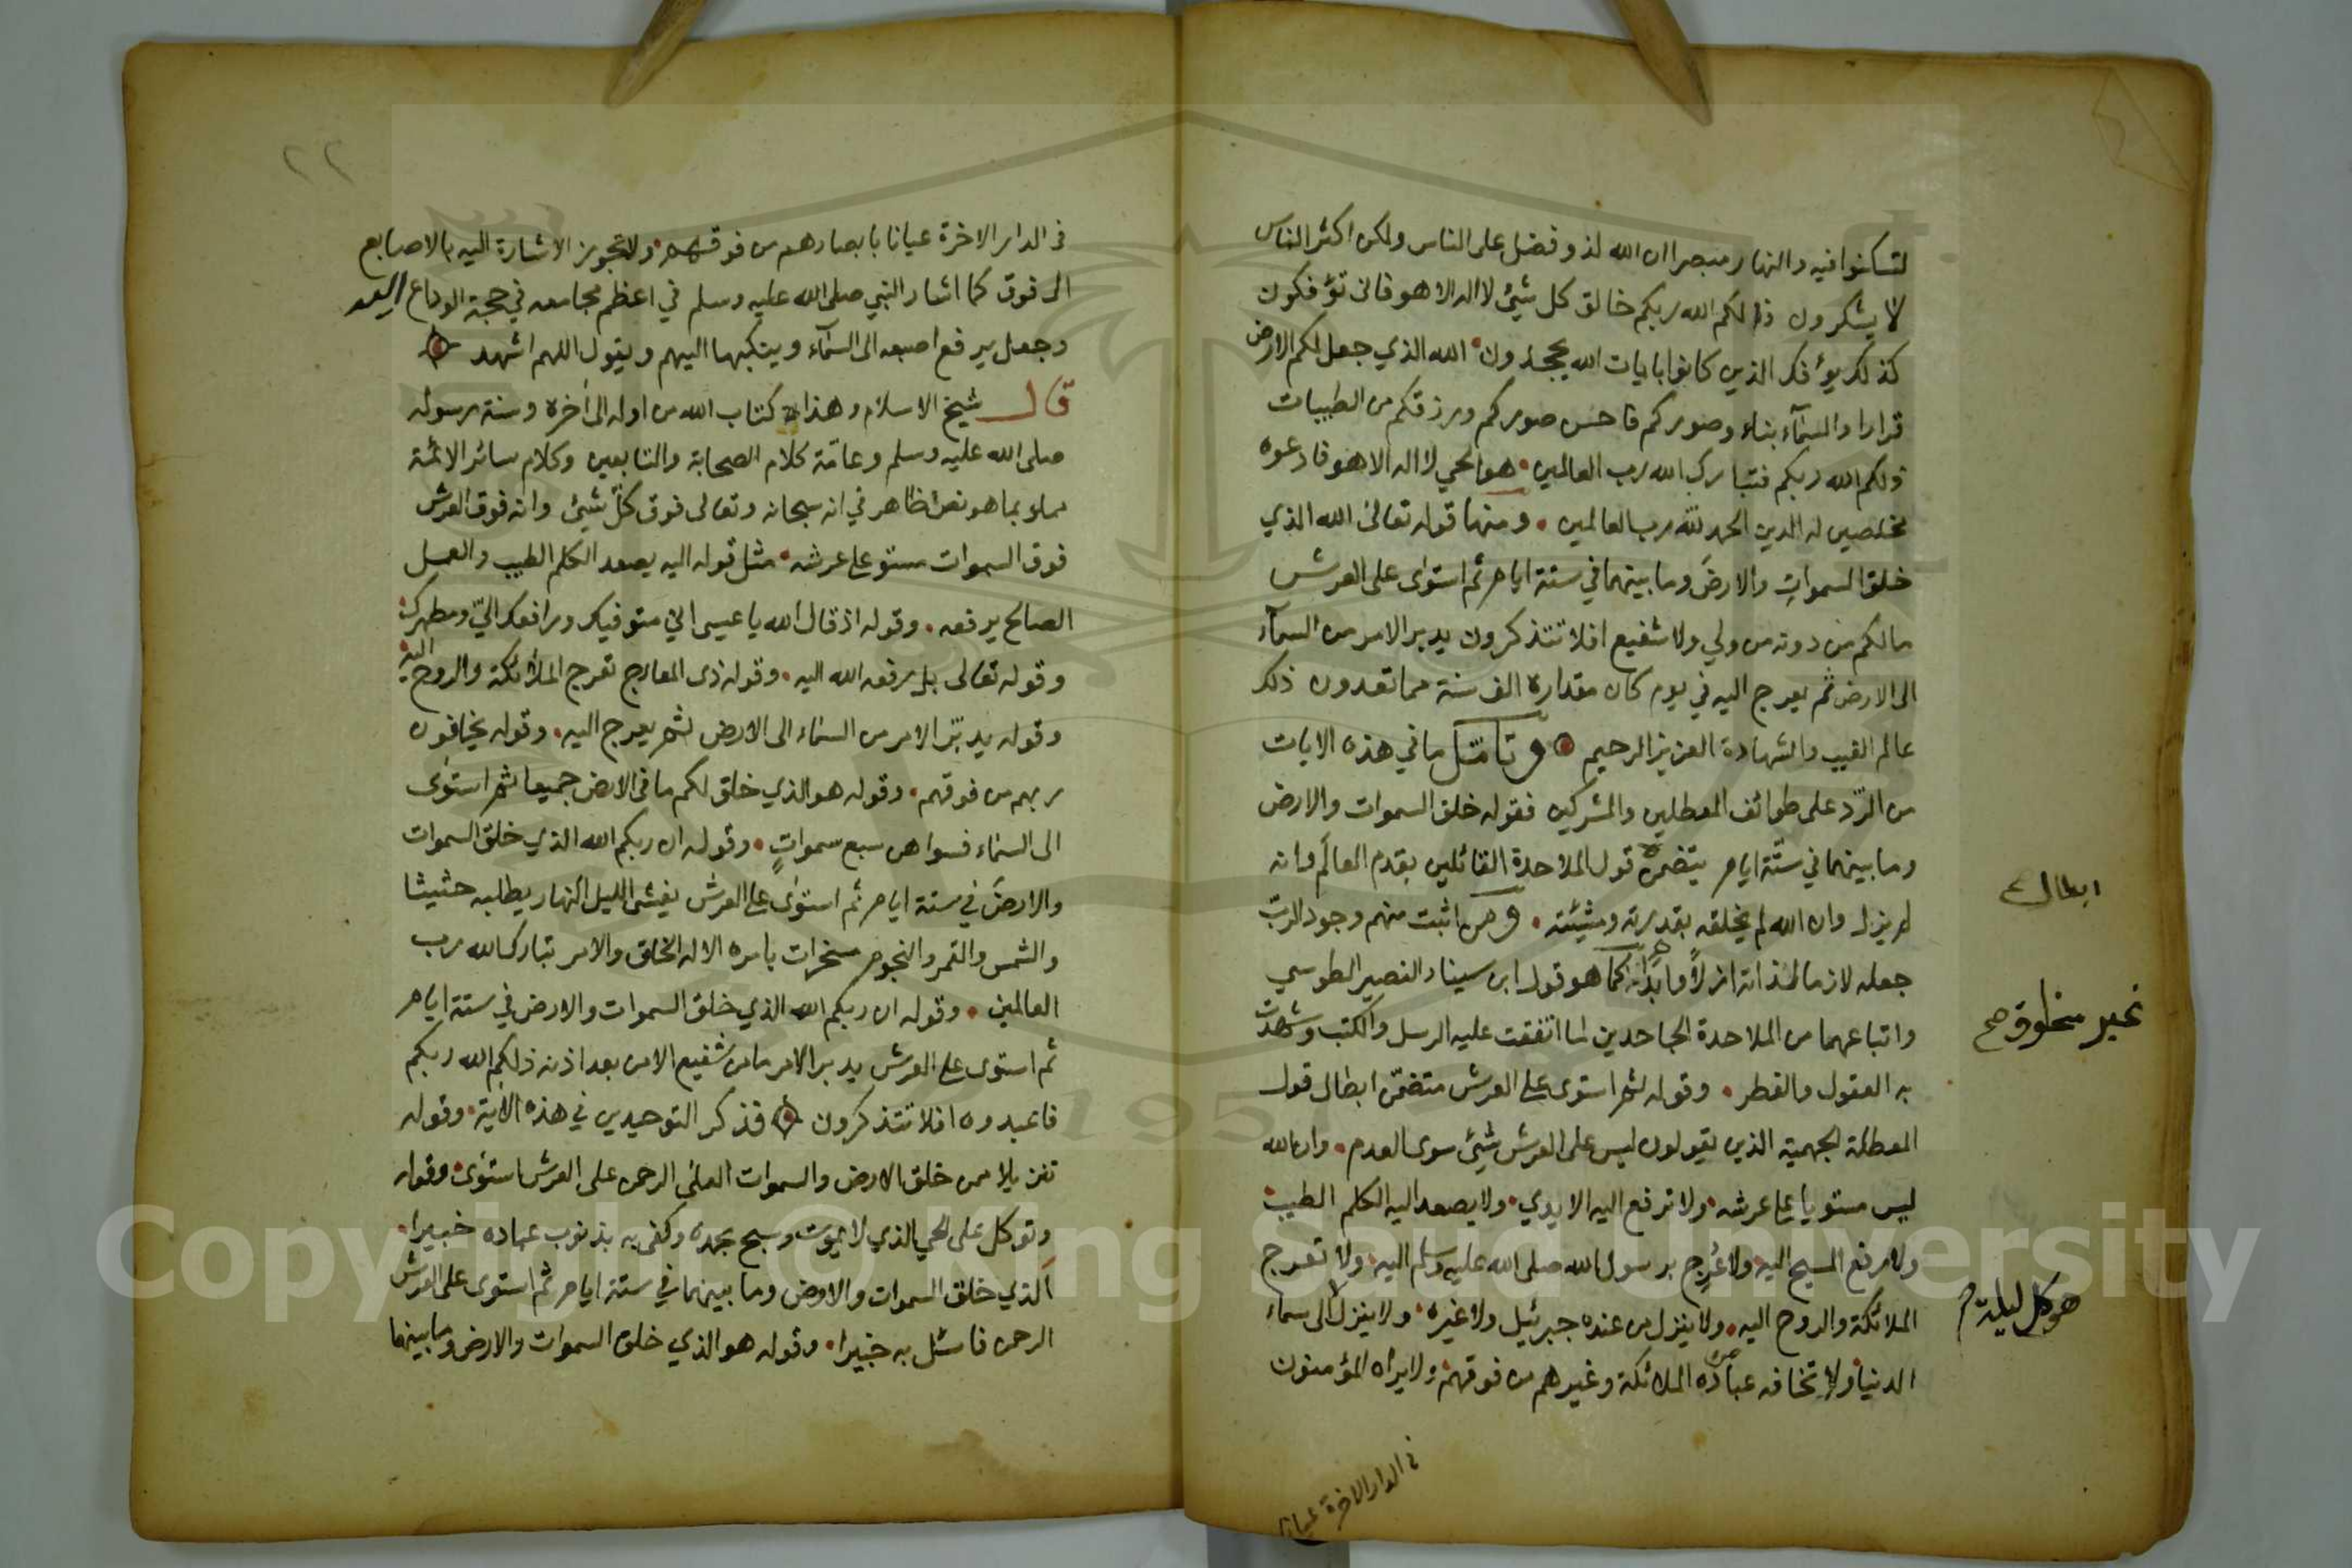 لتسكنوا فيه والنهار مبصرا ان الله لذو فضل على الناس ولكن اكثر الناس
لا يشكرون ذالكم الله ربكم خالق كل شيئ لا اله الا هو فانى تؤفكون
كذلك يؤفك الذين كانوا بايات الله يجحدون الله الذي جعل لكم الارض
قرارا والسمآء بناء وصوركم فاحسن صوركم ورزقكم من الطيبات
ذلكم الله ربكم فتبارك الله رب العالمين هو الحي لا اله الا هو فادعوه
مخلصين له الدين الحمد لله رب العالمين ومنها قوله تعالى الله الذي
خلق السموات والارض وما بينهما في ستة ايام ثم استوى على العرش
مالكم من دونه من ولي ولا شفيع افلا تتذكرون يدبر الامر من السمآء
الى الارض ثم يعرج اليه في يوم كان مقداره الف سنة مما تعدون ذلك
عالم الغيب والشهادة العزيز الرحيم وتأمل ما في هذه الايات
من الرّد على طوائف المعطلين والمشركين فقوله خلق السموات والارض
وما بينهما في ستّة ايام يتضمن قول الملاحدة القائلين بقدم العالم وانه
ابطال
لم يزل وان الله لم يخلقه بقدرته ومشيئته ومن اثبت منهم وجود الربّ
جعله لازما لذاته ازلاً وابداً كما هو قول ابن سينا والنصير الطوسي
غير مخلوق صح
واتباعهما من الملاحدة الجاحدين لما اتفقت عليه الرسل والكتب وشهدت
به العقول والفطر وقوله ثم استوى على العرش متضمّن ابطال قول
المعطلة الجهمية الذين يقولون ليس على العرش شيئ سوى العدم وان الله
ليس مستويا على عرشه ولا ترفع اليه الايدي ولا يصعد اليه الكلم الطيب
ولا رفع المسيح اليه ولا عُرِج برسول الله صلى الله عليه وسلم اليه ولا تعرج
الملائكة والروح اليه ولا ينزل من عنده جبرئيل ولا غيره ولا ينزل الى سماء
هو كل ليلة
الدنيا ولا تخافه عباده من الملائكة وغيرهم من فوقهم ولا يراه المؤمنون
في الدار الاخرة عيانا
٢٢
في الدار الاخرة عيانا بابصارهم من فوقهم ولا تجوز الاشارة اليه بالاصابع
الى فوق كما اشار النبي صلى الله عليه وسلم في اعظم مجامعه في حجة الوداع اليه
وجعل يرفع اصبعه الى السمآء وينكبها اليهم ويقول اللهم اشهد
قال شيخ الاسلام وهذا كتاب الله من اوله الى اخره وسنة رسوله
صلى الله عليه وسلم وعامّة كلام الصحابة والتابعين وكلام سائر الائمة
مملو بما هو نص او ظاهر في انه سبحانه وتعالى فوق كلّ شيئ وانه فوق العرش
فوق السموات مستو على عرشه مثل قوله اليه يصعد الكلم الطيب والعمل
الصالح يرفعه وقوله اذ قال الله يا عيسى اني متوفيك ورافعك اليّ ومطهرك
وقوله تعالى بل رفعه الله اليه وقوله ذي المعارج تعرج الملائكة والروح اليه
وقوله يدبّر الامر من السماء الى الارض ثم يعرج اليه وقوله يخافون
ربهم من فوقهم وقوله هو الذي خلق لكم ما في الارض جميعا ثم استوى
الى السماء فسواهن سبع سمواتٍ وقوله ان ربكم الله الذي خلق السموات
والارض في ستة ايام ثم استوى على العرش يغشى الليل النهار يطلبه حثيثا
والشمس والقمر والنجوم مسخرات بامره الا له الخلق والامر تبارك الله رب
العالمين وقوله ان ربكم الله الذي خلق السموات والارض في ستة ايام
ثم استوى على العرش يدبر الامر ما من شفيع الا من بعد اذنه ذلكم الله ربكم
فاعبدوه افلا تتذكرون فذكر التوحيدين في هذه الاية وقوله
تنزيلا ممن خلق الارض والسموات العلى الرحمن على العرش استوى وقوله
وتوكل على الحي الذي لا يموت وسبح بحمده وكفى به بذنوب عباده خبيرا
الذي خلق السموات والارض وما بينهما في ستة ايام ثم استوى على العرش
الرحمن فاسئل به خبيرا وقوله هو الذي خلق السموات والارض وما بينهما
Copyright © King Saud University
195